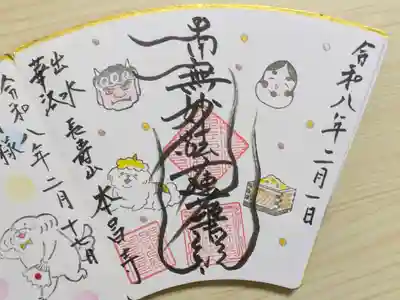 令和八年二月一日
南無妙法蓮華経
出水 長壽山 本昌寺
令和八年二月十七日
様